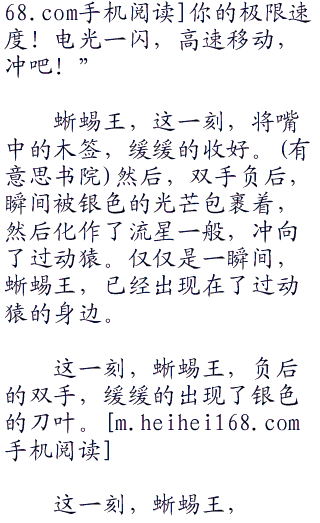 68.com手机阅读]你的极限速
度！电光一闪，高速移动，
冲吧！”
蜥蜴王，这一刻，将嘴
中的木签，缓缓的收好。(有
意思书院)然后，双手负后，
瞬间被银色的光芒包裹着，
然后化作了流星一般，冲向
了过动猿。仅仅是一瞬间，
蜥蜴王，已经出现在了过动
猿的身边。
这一刻，蜥蜴王，负后
的双手，缓缓的出现了银色
的刀叶。[m.heihei168.com
手机阅读]
这一刻，蜥蜴王，